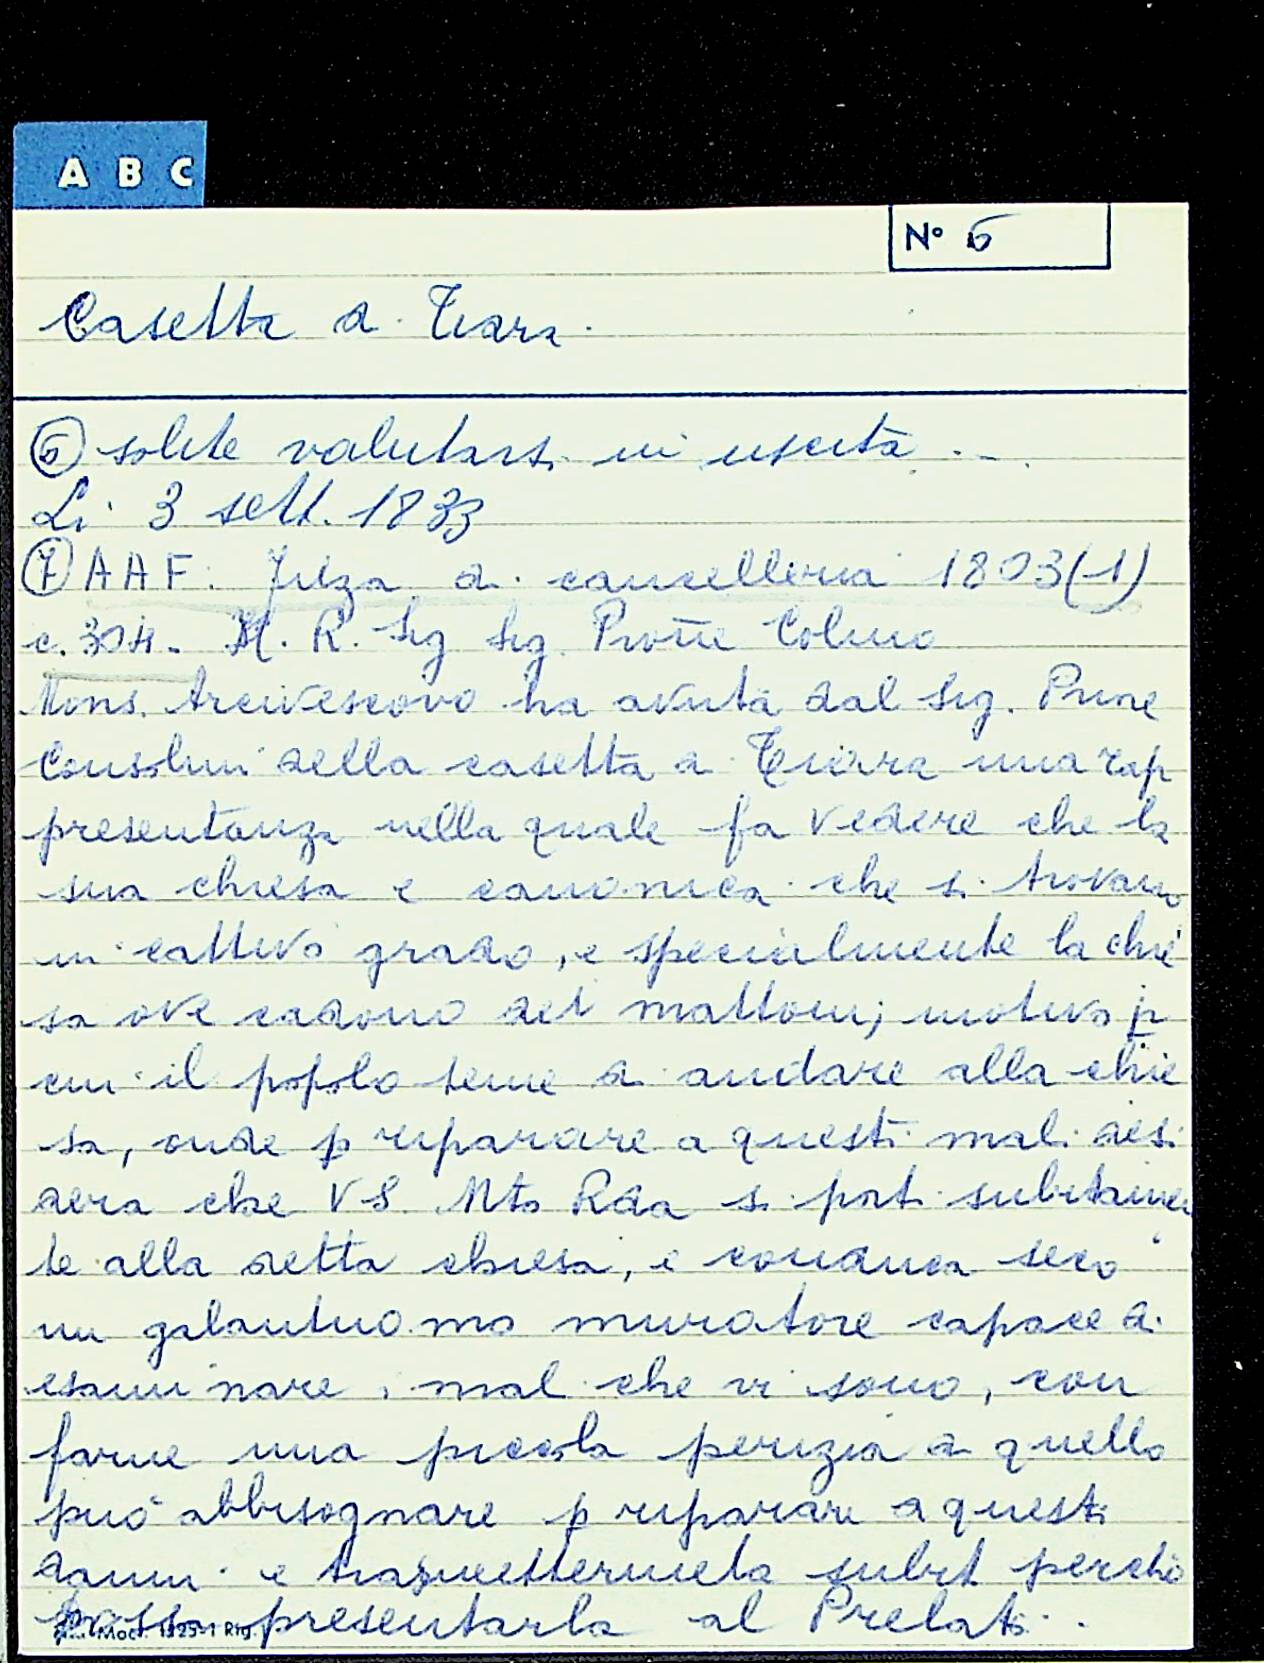 A B C
N° 6
Casetta di Tiara.
⑥ solite valutarsi in uscita ...
Li 3 sett. 1833
⑦ A A F. Filza di cancelleria 1803(1)
c. 304. M. R. Sig Sig. Prone Colmo
Mons. Arcivescovo ha avuta dal Sig. Prore
Consolini della casetta di Tierra una rap
presentanza nella quale fa vedere che la
sua chiesa e canonica che si trovano
in cattivo grado, e specialmente la chie
sa ove cadono dei mattoni; motivo p
cui il popolo teme di andare alla chie
sa, onde p riparare a questi mali desi
dera che VS. Mto Rda si porti subitamen
te alla detta chiesa, e conduca seco
un galantuomo muratore capace di
esaminare i mali che vi sono, con
farne una piccola perizia di quello
può abbisognare p riparare a questi
danni e trasmettermela subit perchè
possa presentarla al Prelato.
Mod. 1525-1 Rig.